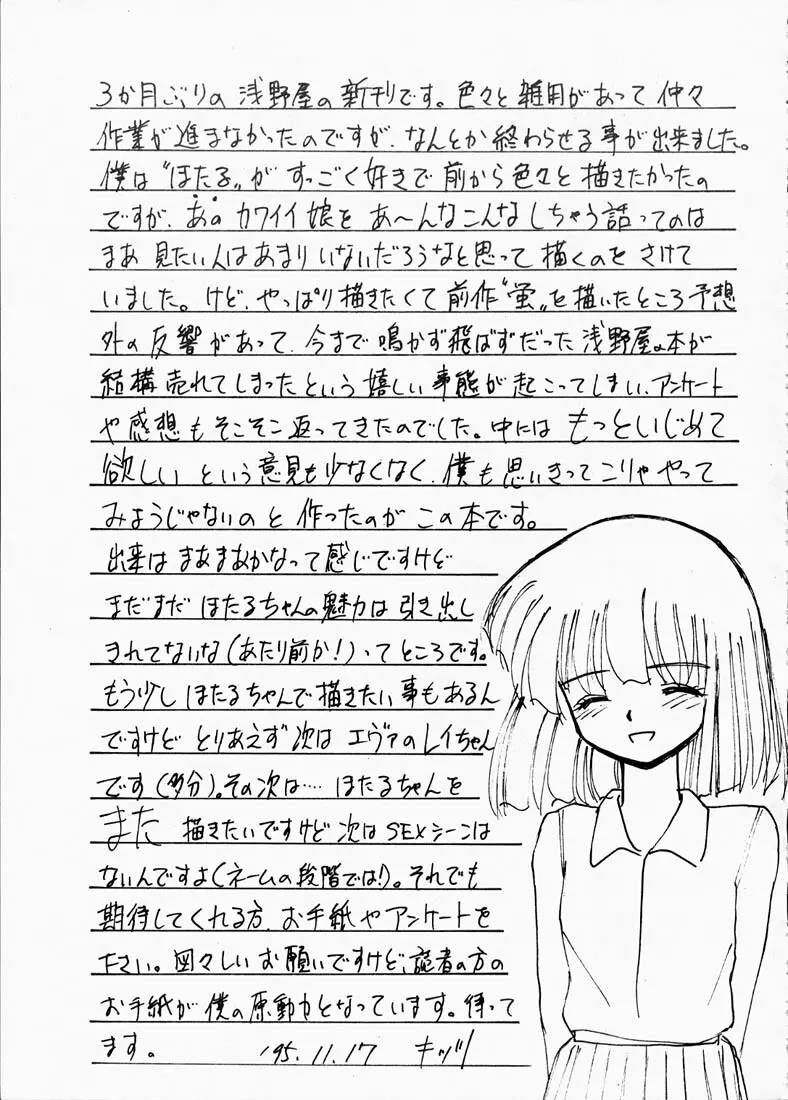 3か月ぶりの 浅野屋の新刊です。色々と雑用があって仲々
作業が進まなかったのですが、なんとか終わらせる事が出来ました。
僕は“ほたる”が すっごく好きで 前から色々と描きたかったの
ですが、あの カワイイ娘を あ〜んなこんな しちゃう話ってのは
まあ 見たい人はあまり いないだろうなと思って 描くのを さけて
いました。けど、やっぱり描きたくて 前作“蛍”を描いたところ予想
外の反響があって、今まで鳴かず飛ばずだった浅野屋の本が
結構売れてしまったという嬉しい事態が起こってしまい、アンケート
や感想もそこそこ返ってきたのでした。中には もっといじめて
欲しい という意見も少なくなく、僕も思いきってこりゃやって
みようじゃないのと 作ったのが この本です。
出来は まあまあかなって感じですけど
まだまだ ほたるちゃんの魅力は 引き出し
きれてないな(あたり前か!)ってところです。
もう少し ほたるちゃんで描きたい事もあるん
ですけど とりあえず次は エヴァのレイちゃん
です(多分)。その次は‥‥ ほたるちゃんを
また 描きたいですけど 次は SEXシーンは
ないんですよ(ネームの段階では!)。それでも
期待してくれる方、お手紙やアンケートを
ださい。図々しいお願いですけど、読者の方の
お手紙が 僕の原動力となっています。待って
ます。 '95.11.17 キッツ